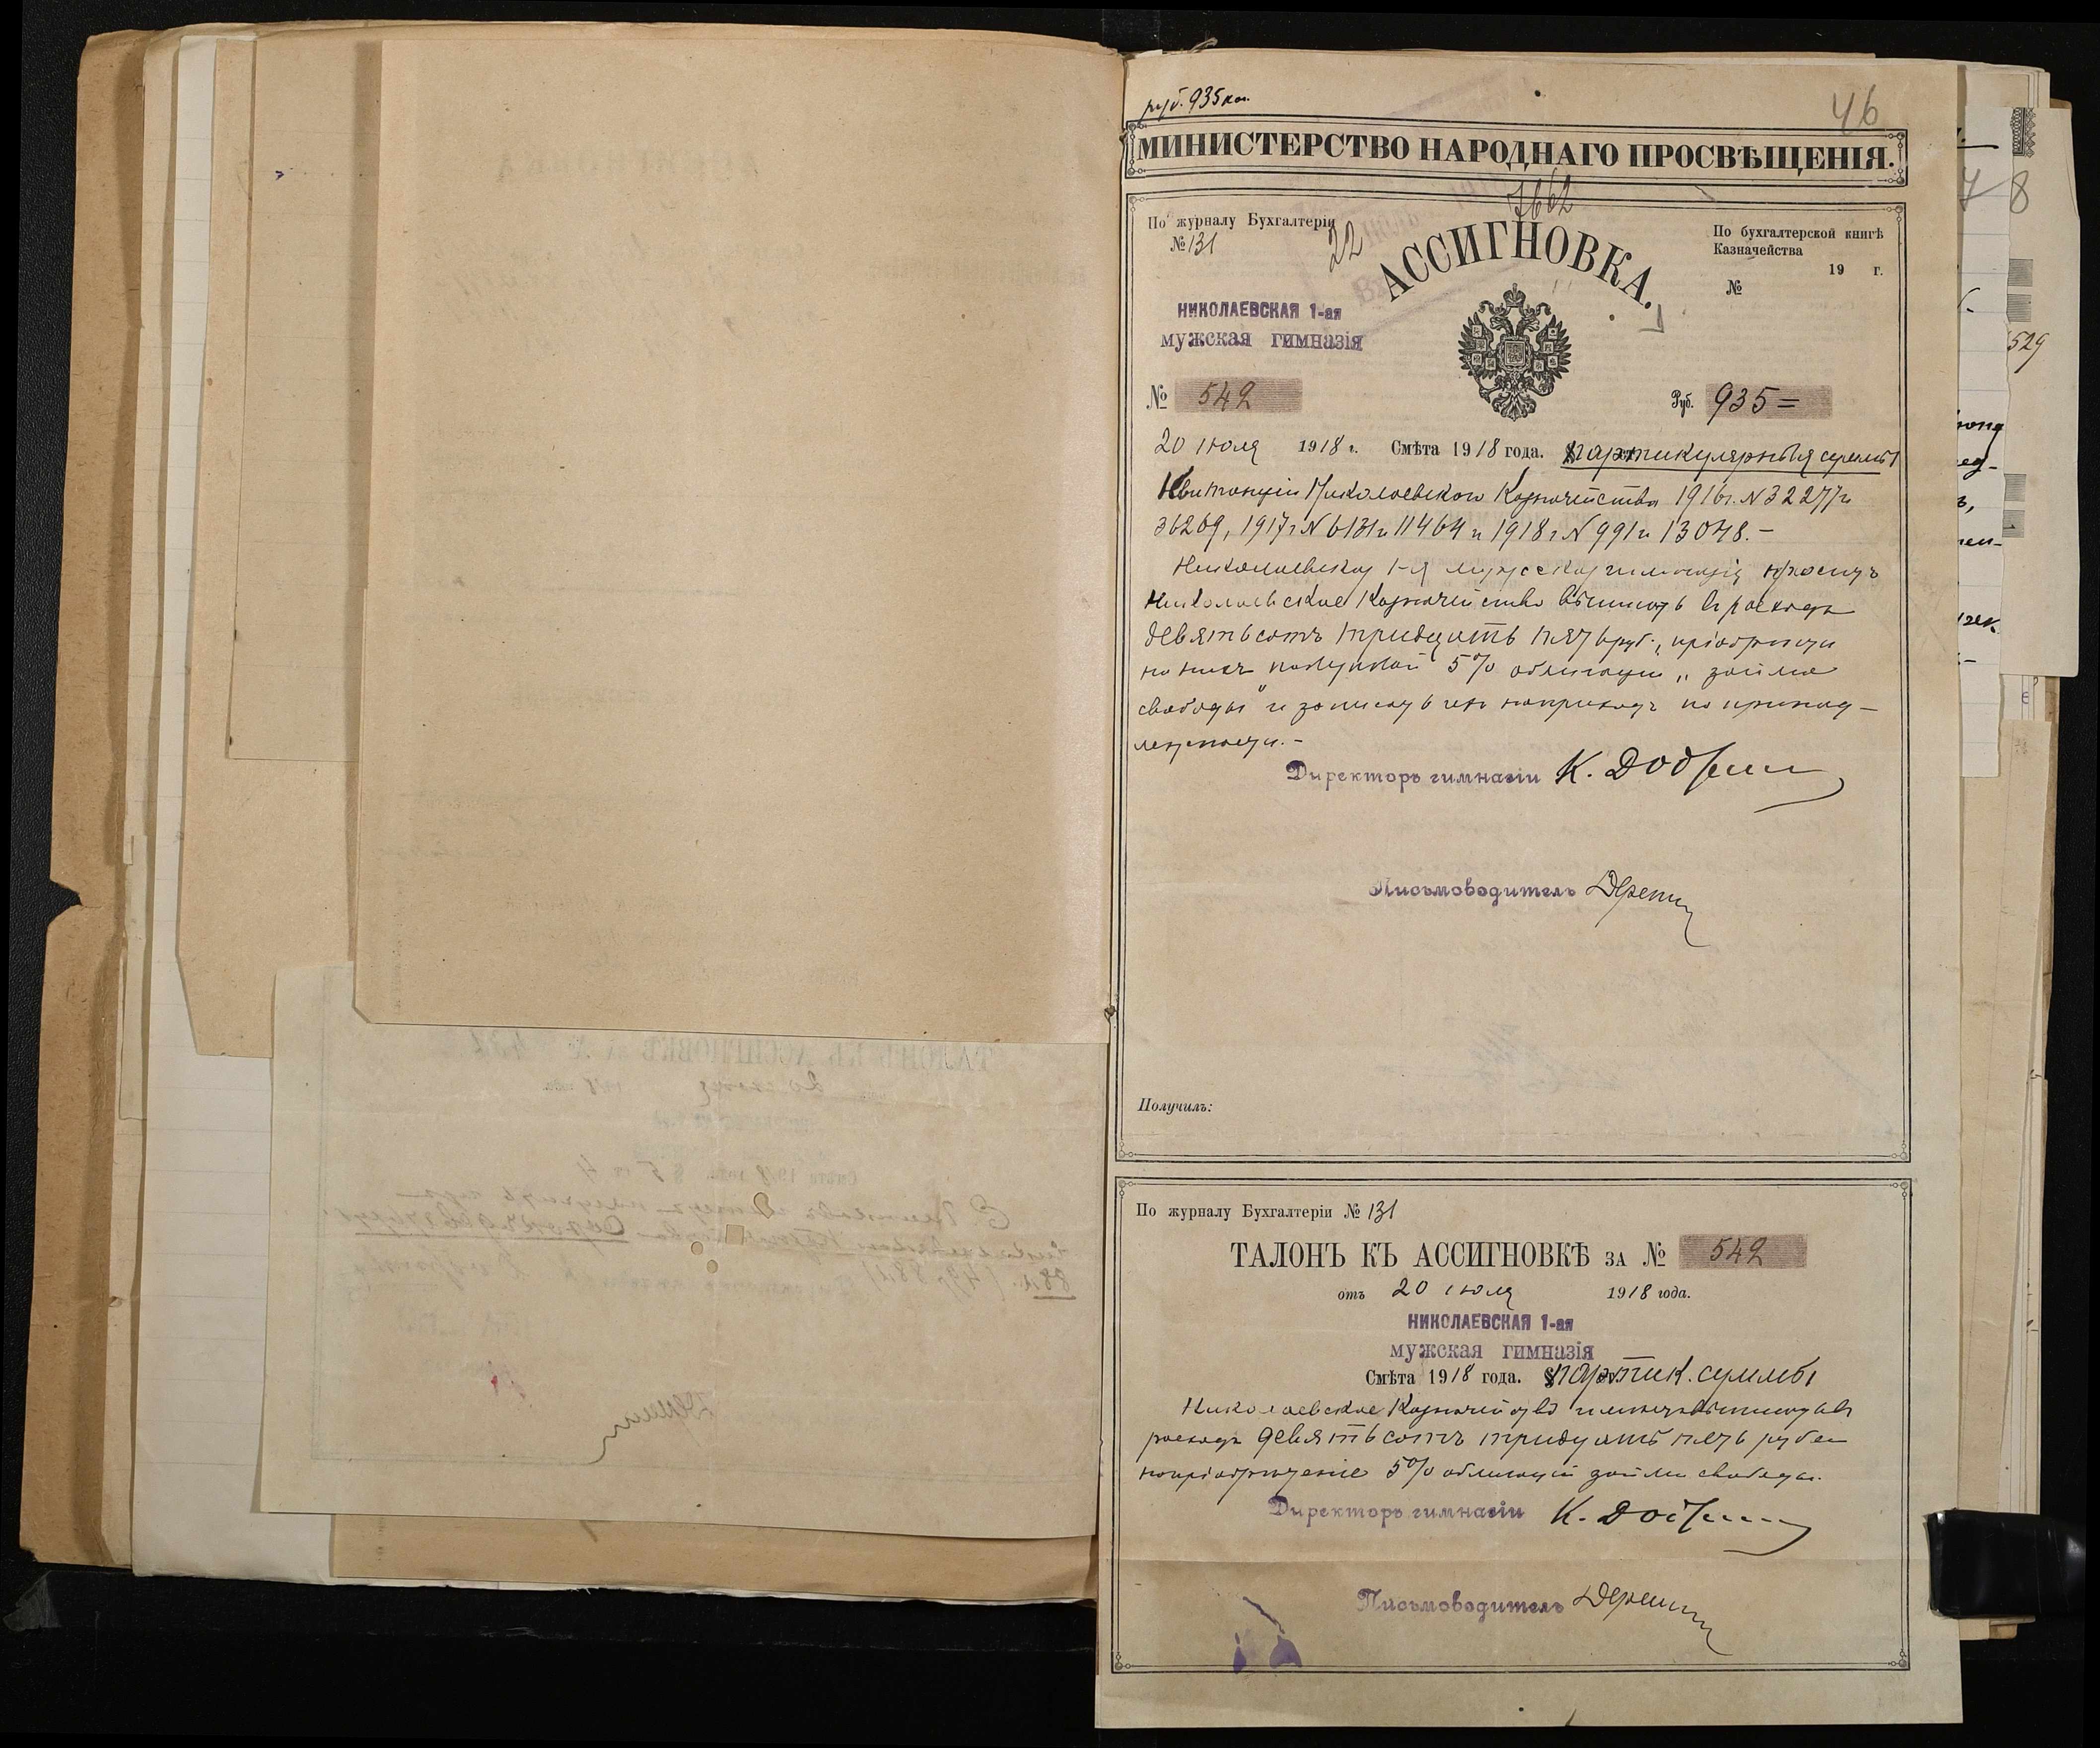 руб. 935 коп.
46
МИНИСТЕРСТВО НАРОДНАГО ПРОСВѢЩЕНІЯ.
По журналу Бухгалтеріи
№ 131
22
АССИГНОВКА.
По бухгалтерской книгѣ
Казначейства
19 г.
№
НИКОЛАЕВСКАЯ 1-ая
мужская гимназія
№ 542
Руб. 935 =
20 іюля 1918 г. Смѣта 1918 года. партикулярныя суммы
Квитанціи Николаевского Казначейства 1916 г. N 32277 и
36269, 1917 г N 6131 и 11464 и 1918 г N 991 и 13048. –
Николаевская 1-я мужская гимназія проситъ
Николаевское Казначейство выписать въ расходъ
девятьсотъ тридцать пять руб., пріобрѣсти
на нихъ покупкой 5% облигаціи „займа
свободы" и записать ихъ на приходъ по принад-
лежности. –
Директоръ гимназіи К.
Письмоводитель
Получилъ:
По журналу Бухгалтеріи № 131
ТАЛОНЪ КЪ АССИГНОВКѢ ЗА № 542
отъ 20 іюля 1918 года.
НИКОЛАЕВСКАЯ 1-ая
мужская гимназія
Смѣта 1918 года. партик. суммы
Николаевское Казначейство имѣетъ выписать въ
расходъ девятьсотъ тридцать пять рублей
на пріобрѣтеніе 5% облигацій займа свободы.
Директоръ гимназіи К.
Письмоводитель
529